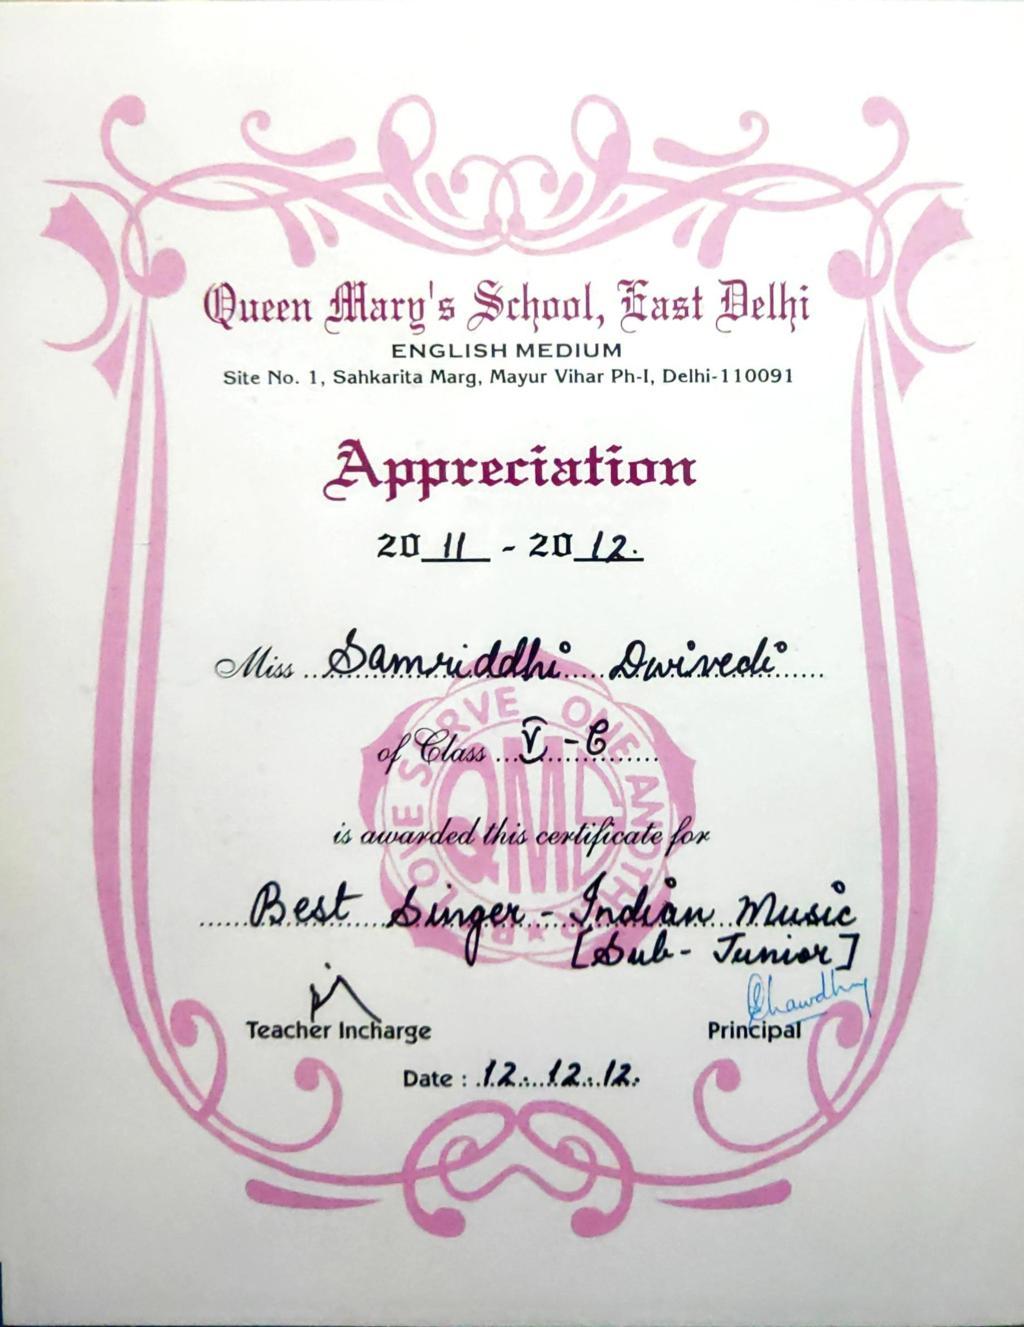 Queen Mary's School, East Delhi
ENGLISH MEDIUM
Site No. 1, Sahkarita Marg, Mayur Vihar Ph-I, Delhi-110091
Appreciation
20 11 - 20 12.
Miss Samriddhi Dwivedi
of Class V - C
is awarded this certificate for
Best Singer - Indian Music
[Sub - Junior]
Chawdhry
Teacher Incharge Principal
Date : 12. 12. 12.
SERVE ONE ANOTHER
QM